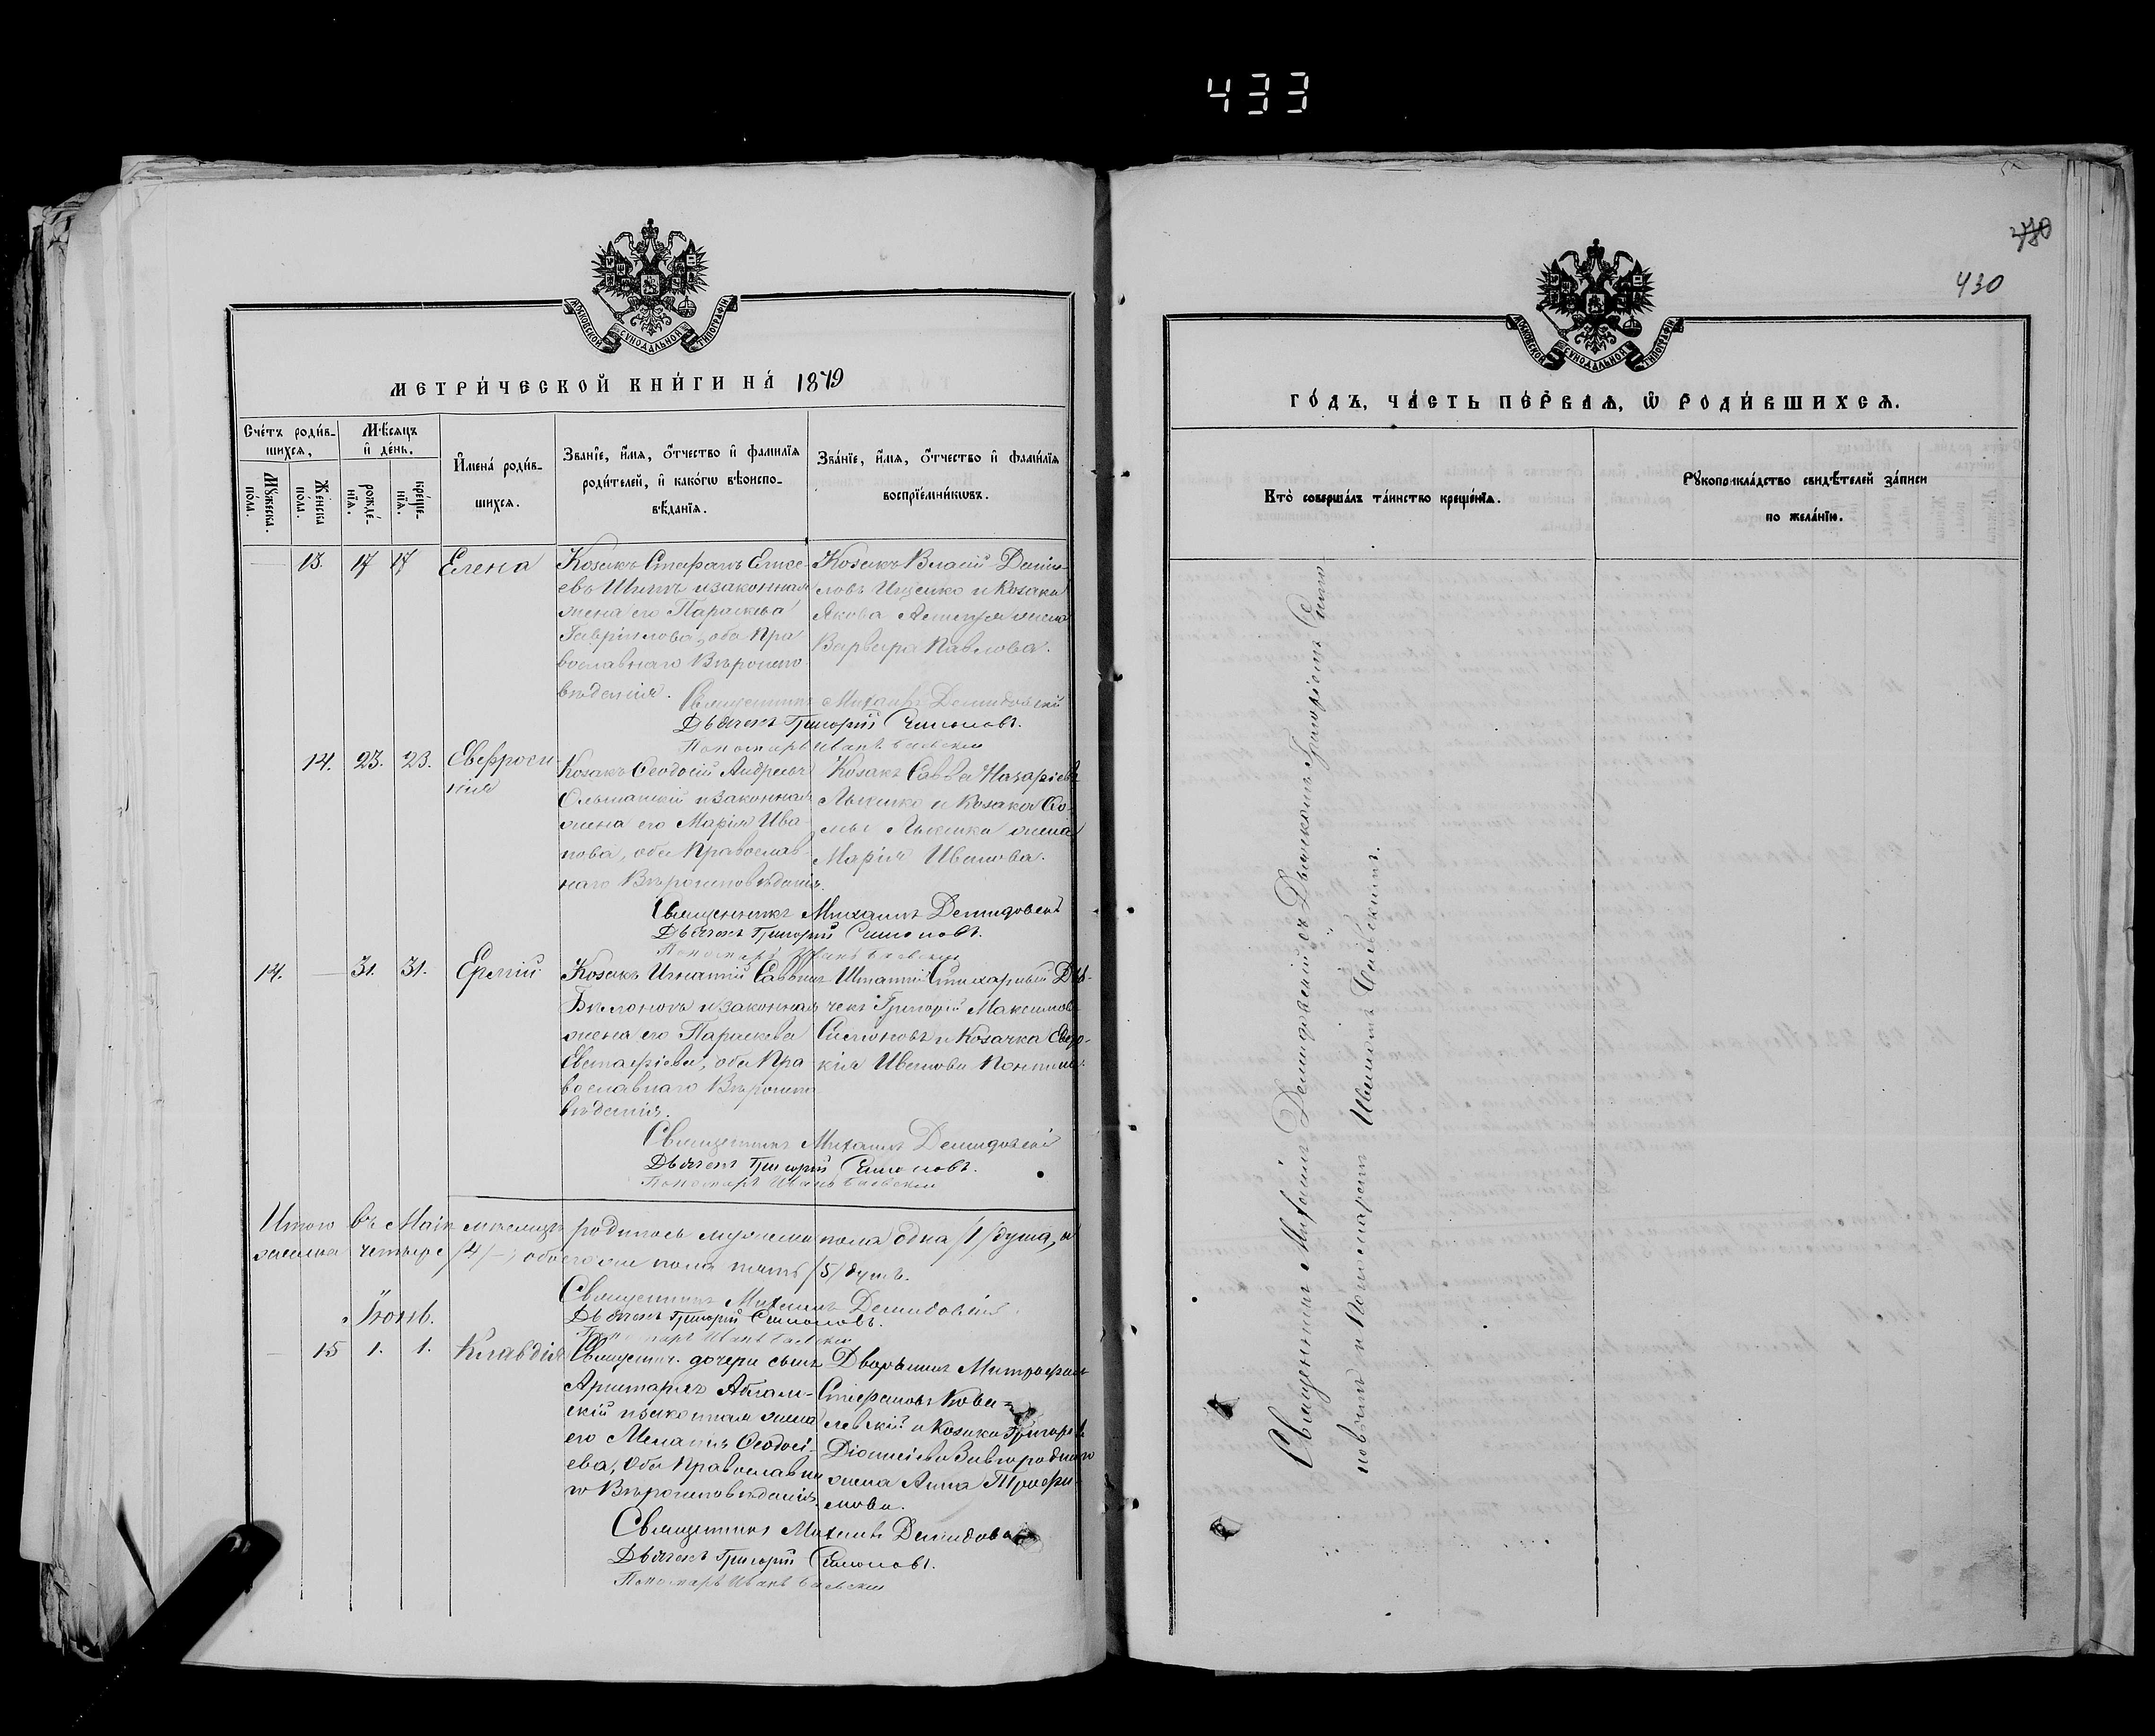 433
430
МОСКОВСКОЙ СУНОДАЛЬНОЙ ТИПОГРАФІИ
МЕТРИ́ЧЕСКОЙ КНИ́ГИ НА́ 1879
Сче́тъ роди́в-
шихся,
Мѣсяцъ
и҆ де́нь.
Мꙋжеска
по́ла.
Же́нска
по́ла.
рожде́-
нїя.
креще́-
нїя.
И҆мена̀ роди́в-
шихся.
Зва́нїе, и҆́мя, ѻ҆́тчество и҆ фами́лїя
роди́телей, и҆ како́гѡ вѣроиспо-
вѣ́данїя.
Зва́нїе, и҆́мя, ѻ҆́тчество и҆ фами́лїя
воспрїе́мникѡвъ.
13. 17 17 Елена
Козакъ Стефанъ Елисе-
евъ и законная
жена его Параскева
Гавріилова, оба Пра
вославнаго Вѣроиспо
вѣданія.
Козакъ Власій
Ищенко и Козака
Якова жена
Варвара Павлова.
Священникъ Михаилъ Демидовскій
Дьячекъ Григорій Симоновъ.
Пономарь Иванъ
14. 23. 23. Евфроси-
нія
Козакъ Ѳеодосій Андреевъ
и законная
жена его Марія Ива
нова, оба Православ-
наго Вѣроисповѣданія.
Козакъ Савва Назаріевъ
и Козака Ѳо-
мы жена
Марія Иванова.
Священникъ Михаилъ Демидовскій
Дьячекъ Григорій Симоновъ.
Пономарь Иванъ
14. — 31. 31. Ермій
Козакъ Игнатій Саввинъ
и законная
жена его Параскева
Евстафіева, оба Пра
вославнаго Вѣроиспо
вѣданія.
Штатній Стихарный Дья-
чекъ Григорій Максимов
Симоновъ и Козачка Евдо-
кія Иванова
Священникъ Михаилъ Демидовскій
Дьячекъ Григорій Симоновъ.
Пономарь Иванъ
Итого въ Маіѣ мѣсяцѣ родилось мужеска пола одна /1/ душа, а
женска четыре /4/ —, обоего же пола пять /5/ душъ.
Священникъ Михаилъ Демидовскій
Дьячекъ Григорій Симоновъ.
Пономарь Иванъ
Іюнь.
15 1. 1. Клавдія
Священнич. дочери сынъ
Аристархъ
и законная жена
его Меланія Ѳеодосі-
ева, оба Православна
го Вѣроисповѣданія.
Дворянинъ Митрофанъ
Стефановъ Кова-
левскій и Козака Григорія
Діонисіева
жена Анна Трофи
мова.
Священникъ Михаилъ Демидовскій
Дьячекъ Григорій Симоновъ.
Пономарь Иванъ
МОСКОВСКОЙ СУНОДАЛЬНОЙ ТИПОГРАФІИ
ГО́ДЪ, ЧА́СТЬ ПЕ́РВАЯ, Ѡ҆ РОДИ́ВШИХСЯ.
Кто̀ соверша́лъ та́инство креще́нїя.
Рꙋкоприкла́дство свидѣ́телей за́писи
по жела́нїю.
Священникъ Михаилъ Демидовскій съ Дьячкомъ Григоріемъ Симо
новымъ и Пономаремъ Иваномъ